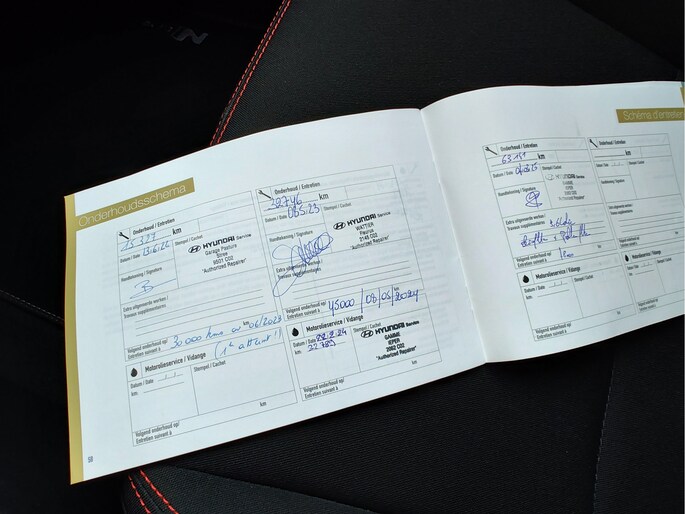 Onderhoudsschema
Onderhoud / Entretien
15 327 km
Datum / Date 13.6.22 Stempel / Cachet
HYUNDAI Service
Garage Pasture
8501 C02
"Authorized Repairer"
Handtekening / Signature
B
Extra uitgevoerde werken /
Travaux supplémentaires
30 000 kms or 06/2023
Volgend onderhoud op/
Entretien suivant à
(1° atteint!)
km
Motorolieservice / Vidange
Datum / Date
km
Stempel / Cachet
Volgend onderhoud op/
Entretien suivant à
km
50
Onderhoud / Entretien
29746 km
Datum / Date 08.5.23 Stempel / Cachet
HYUNDAI Service
WATTIER
Peurus
2145 C02
"Authorized Repairer"
Handtekening / Signature
Extra uitgevoerde werken /
Travaux supplémentaires
45000 / 08/05/2024
Volgend onderhoud op/
Entretien suivant à
km
Motorolieservice / Vidange
Datum / Date 22.2.24
km
Stempel / Cachet
HYUNDAI Service
GAMME
IEPER
2062 C02
"Authorized Repairer"
Volgend onderhoud op/
Entretien suivant à
km
Schéma d'entretien
Onderhoud / Entretien
63 151 km
Datum / Date Stempel / Cachet
HYUNDAI
GAMME
IEPER
2062 C02
Handtekening / Signature
Extra uitgevoerde werken /
Travaux supplémentaires
Volgend onderhoud op/
Entretien suivant à
km
Motorolieservice / Vidange
Datum / Date
km
Stempel / Cachet
Volgend onderhoud op/
Entretien suivant à
km
Onderhoud / Entretien
km
Datum / Date Stempel / Cachet
Handtekening / Signature
Extra uitgevoerde werken /
Travaux supplémentaires
Volgend onderhoud op/
Entretien suivant à
Motorolieservice / Vidange
Datum / Date
km
Stempel / Cachet
Volgend onderhoud op/
Entretien suivant à